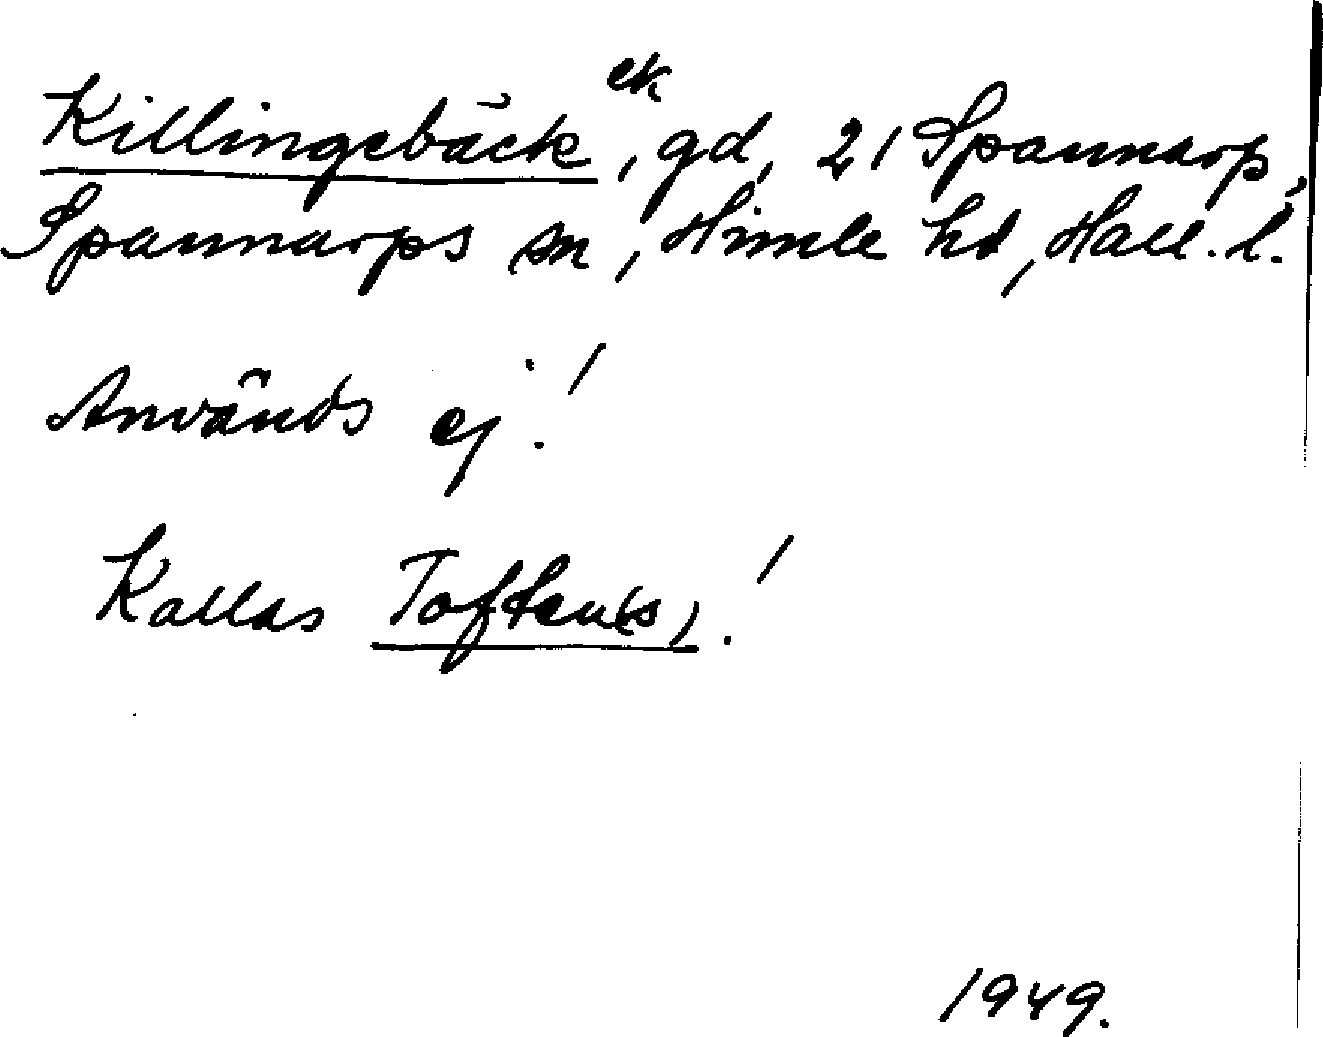 Killingebäck ek, gd, 21 Spannarp,
Spannarps sn, Himle hd, Hall. l.
Används ej!
Kallas Toften(s)!
1949.